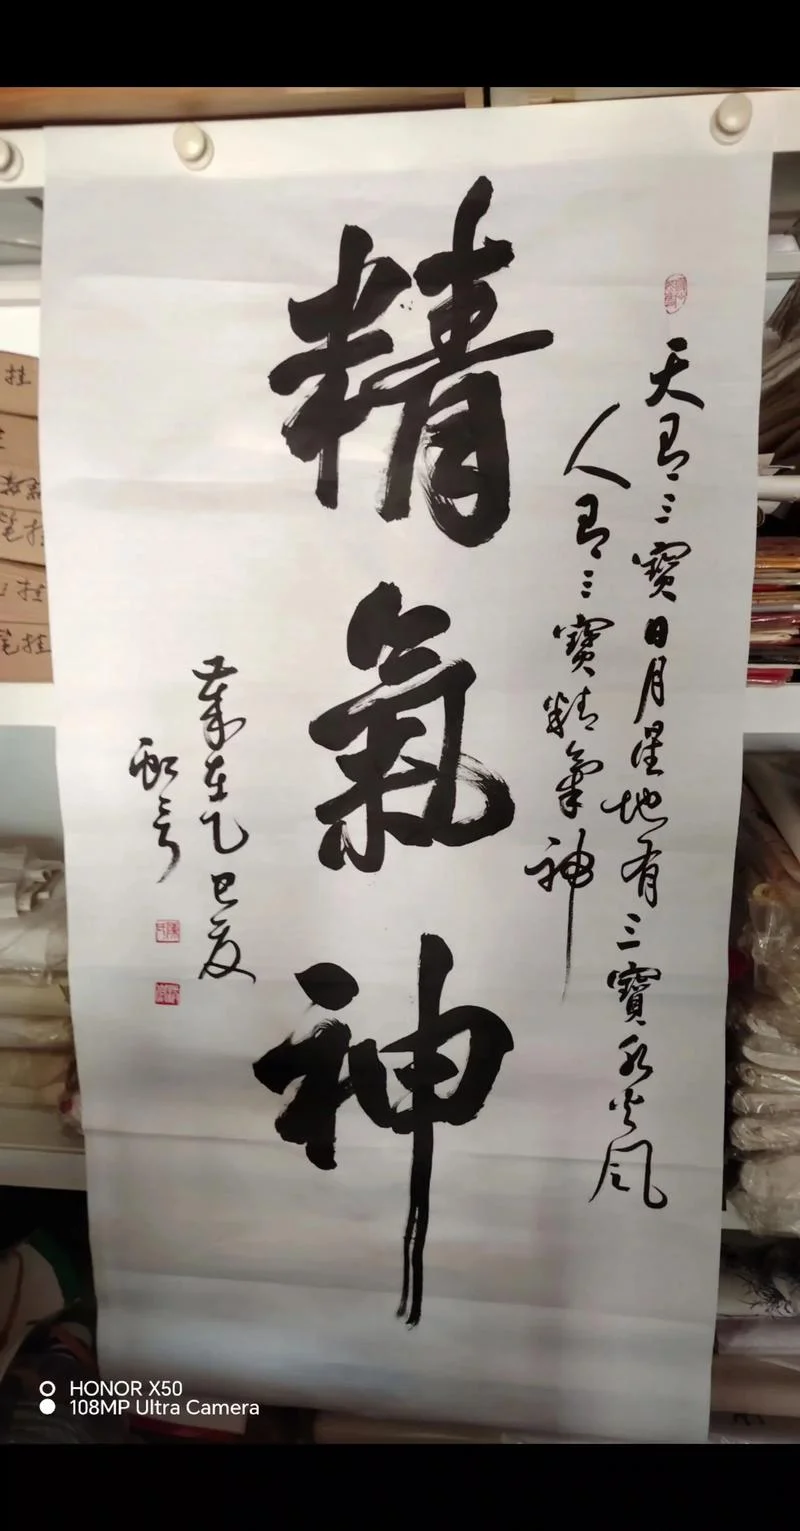 精氣神
天有三寶日月星地有三寶水火風
人有三寶精氣神
歲在乙巳夏
挂
笔挂
笔挂
HONOR X50
108MP Ultra Camera